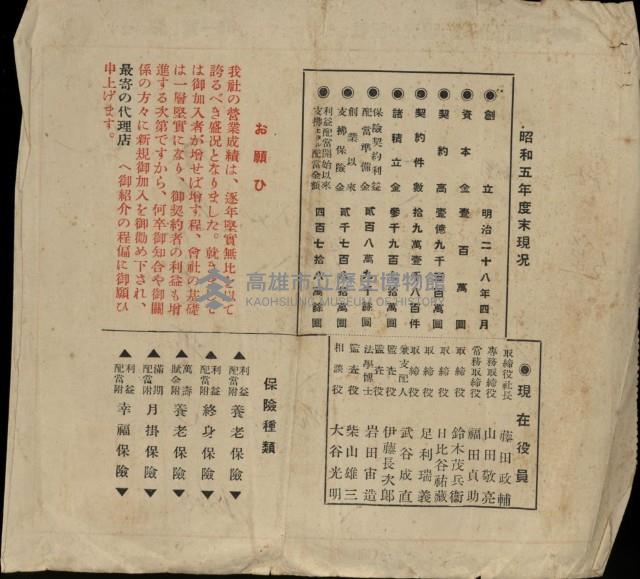 昭和五年度末現況
◉創立 明治二十八年四月
◉資本金 壹百萬圓
◉契約高 壹億九千
百萬圓
◉契約件數 拾九萬壹
八百件
◉諸積立金 參千九百
拾萬圓
◉保險契約利益配當準備金 貳百八萬九千餘圓
◉創業以來支拂保險金 貳千七百
拾萬餘圓
◉利益配當開始以來支拂ヒタル配當金額 四百七拾八萬餘圓
お願ひ
我社の營業成績は、逐年堅實無比
以て
誇るべき盛況となりました。就き
て
は御加入者が增せば增す程、會社の基礎
は一層堅實になり、御契約者の利益も增
進する次第ですから、何卒御知合や御關
係の方々に新規御加入を御勸め下され、
最寄の代理店 へ御紹介の程偏に御願ひ
申上げます。
◉現在役員
取締役社長 藤田政輔
專務取締役 山田敬亮
常務取締役 福田貞助
取締役 鈴木茂兵衞
取締役 日比谷祐藏
取締役 足利瑞義
取締役兼支配人 武谷成直
監査役 伊藤長次郎
監査役法學博士 岩田宙造
監査役 柴山雄三
相談役 大谷光明
保險種類
▲利益配當附 養老保險▼
▲利益配當附 終身保險▼
▲萬壽賦金附 養老保險▼
▲滿期配當附 月掛保險▼
▲利益配當附 幸福保險▼
高雄市立歷史博物館
KAOHSIUNG MUSEUM OF HISTORY